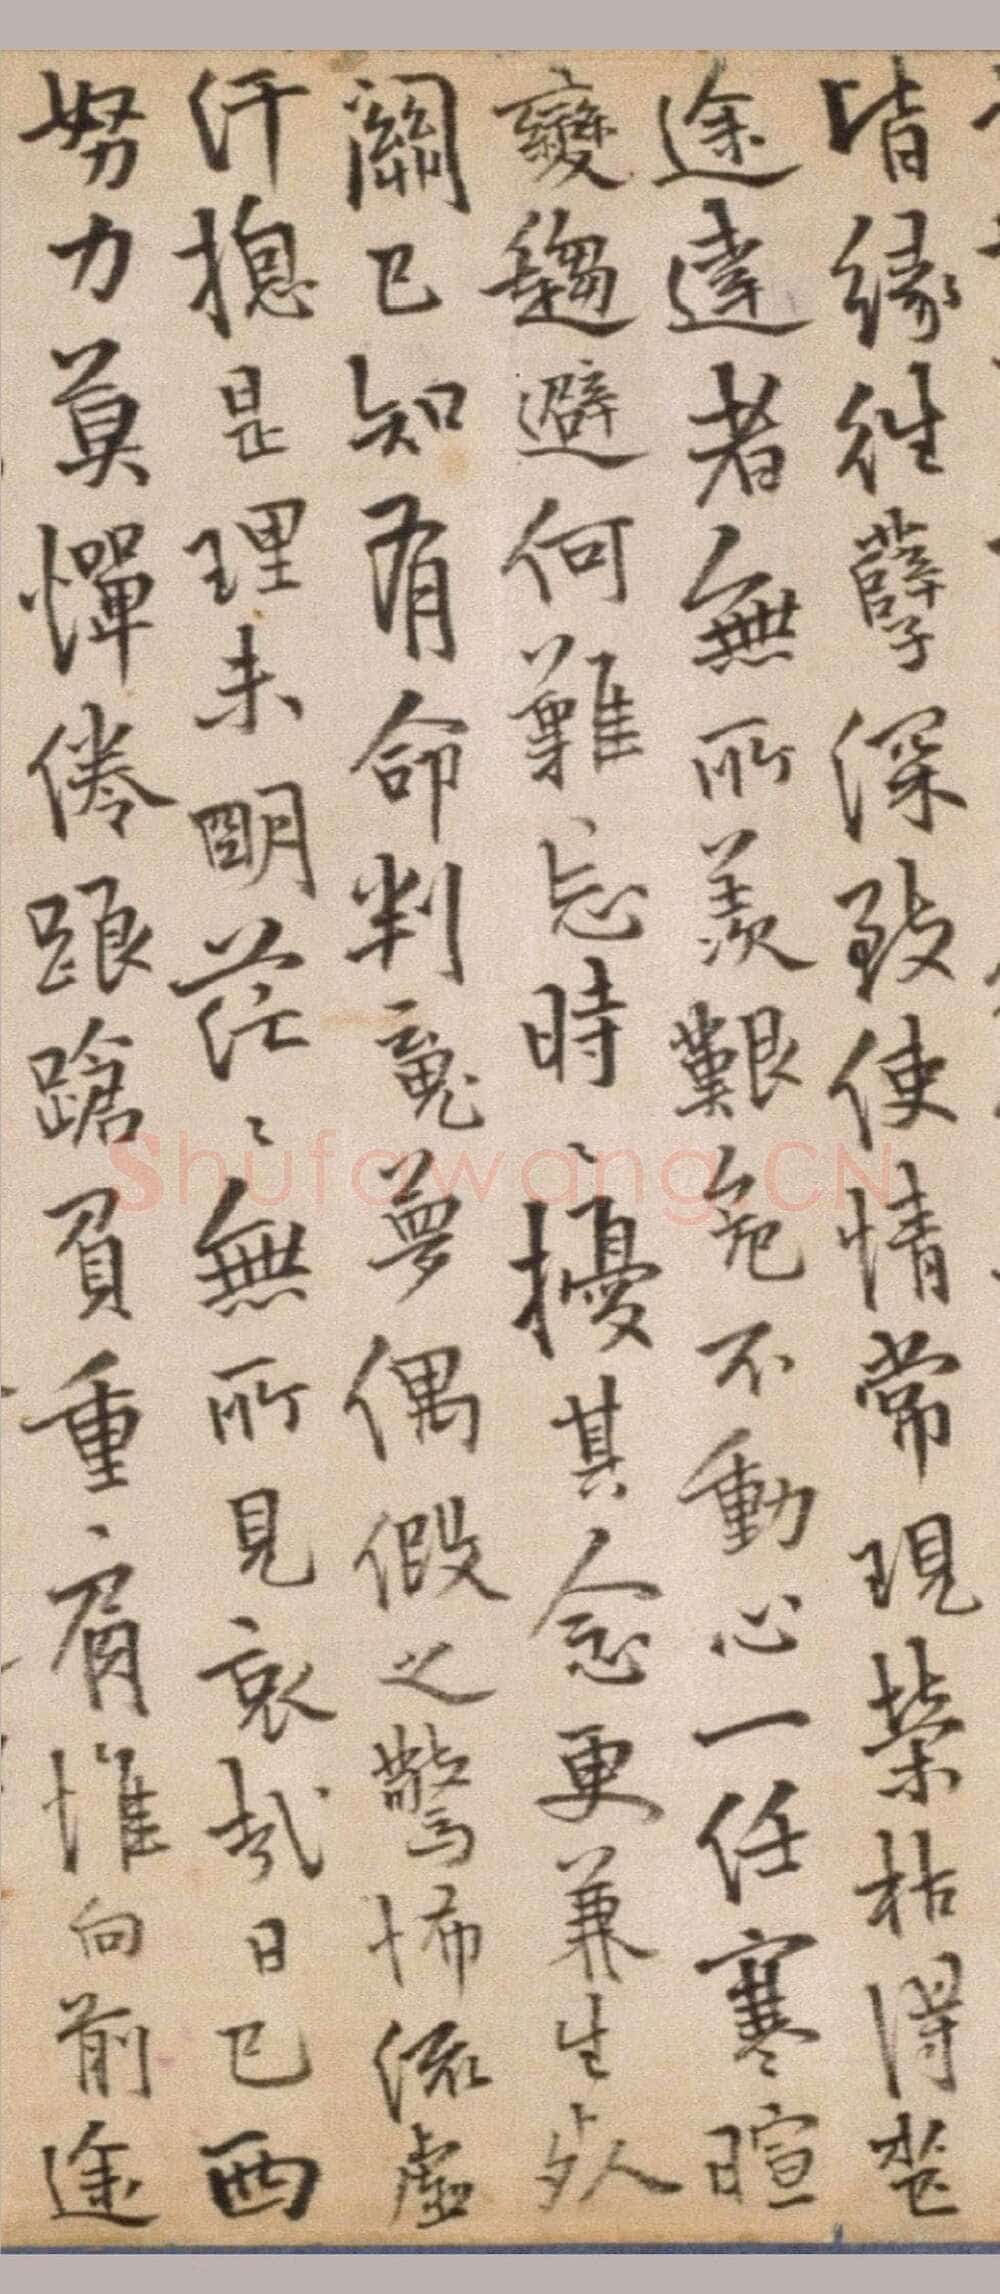 皆緣往孽深致使情常現榮枯得楚
途達者無所羨艱危不動心一任寒暄
變趨避何難忘時〻擾其念更兼生死
關已知有命判竟夢偶假之驚怖流虛
汗抱是理未明茫〻無所見哀哉日已西
努力莫憚倦踉蹌負重肩惟向前途
Shufawang.CN